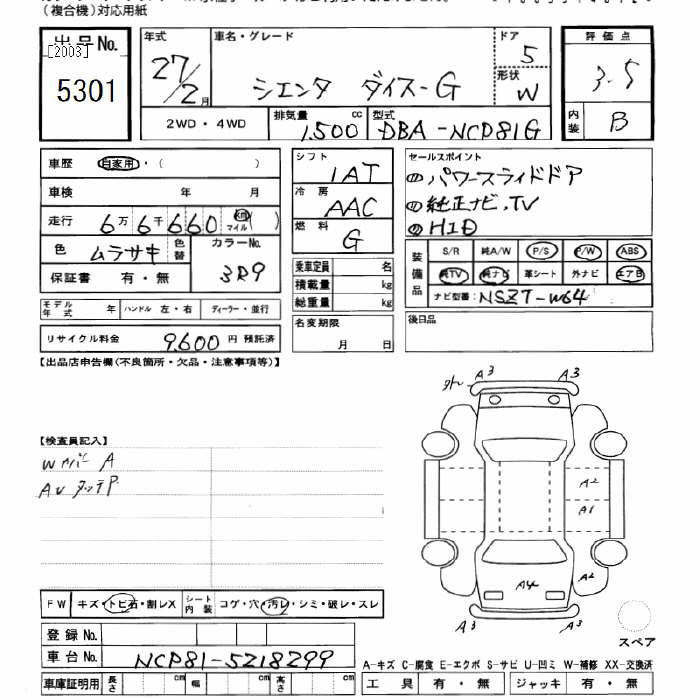 (複合機)対応用紙
出品No.
[2003]
5301
年式 27/2月
車名・グレード シエンタ ダイス-G
ドア 5
形状 W
2WD・4WD
排気量 1,500 cc
型式 DBA-NCP81G
評価点 3.5
内装 B
車歴 自家用・( )
車検 年 月
走行 6万6千660 km マイル ( )
色 ムラサキ 色替 カラーNo. 3R9
保証書 有・無
シフト IAT
冷房 AAC
燃料 G
乗車定員 名
積載量 kg
総重量 kg
名変期限
月 日
セールスポイント
パワースライドドア
純正ナビ、TV
HID
装備品 S/R 純A/W P/S P/W ABS
純TV 純ナビ 革シート 外ナビ エアB
ナビ型番: NSZT-W64
後日品
モデル年式 年 ハンドル 左・右 ディーラー・並行
リサイクル料金 9,600 円 預託済
【出品店申告欄(不良箇所・欠品・注意事項等)】
【検査員記入】
A
A3 A3
A2
A1
A2
A4
A3 A3
FW キズ・トビ石・割レX シート内装 コゲ・穴・汚レ・シミ・破レ・スレ
登録No.
車台No. NCP81-5218299
車庫証明用 長さ cm 幅 cm 高さ cm
スペア
A-キズ C-腐食 E-エクボ S-サビ U-凹ミ W-補修 XX-交換済
工具 有・無 ジャッキ 有・無